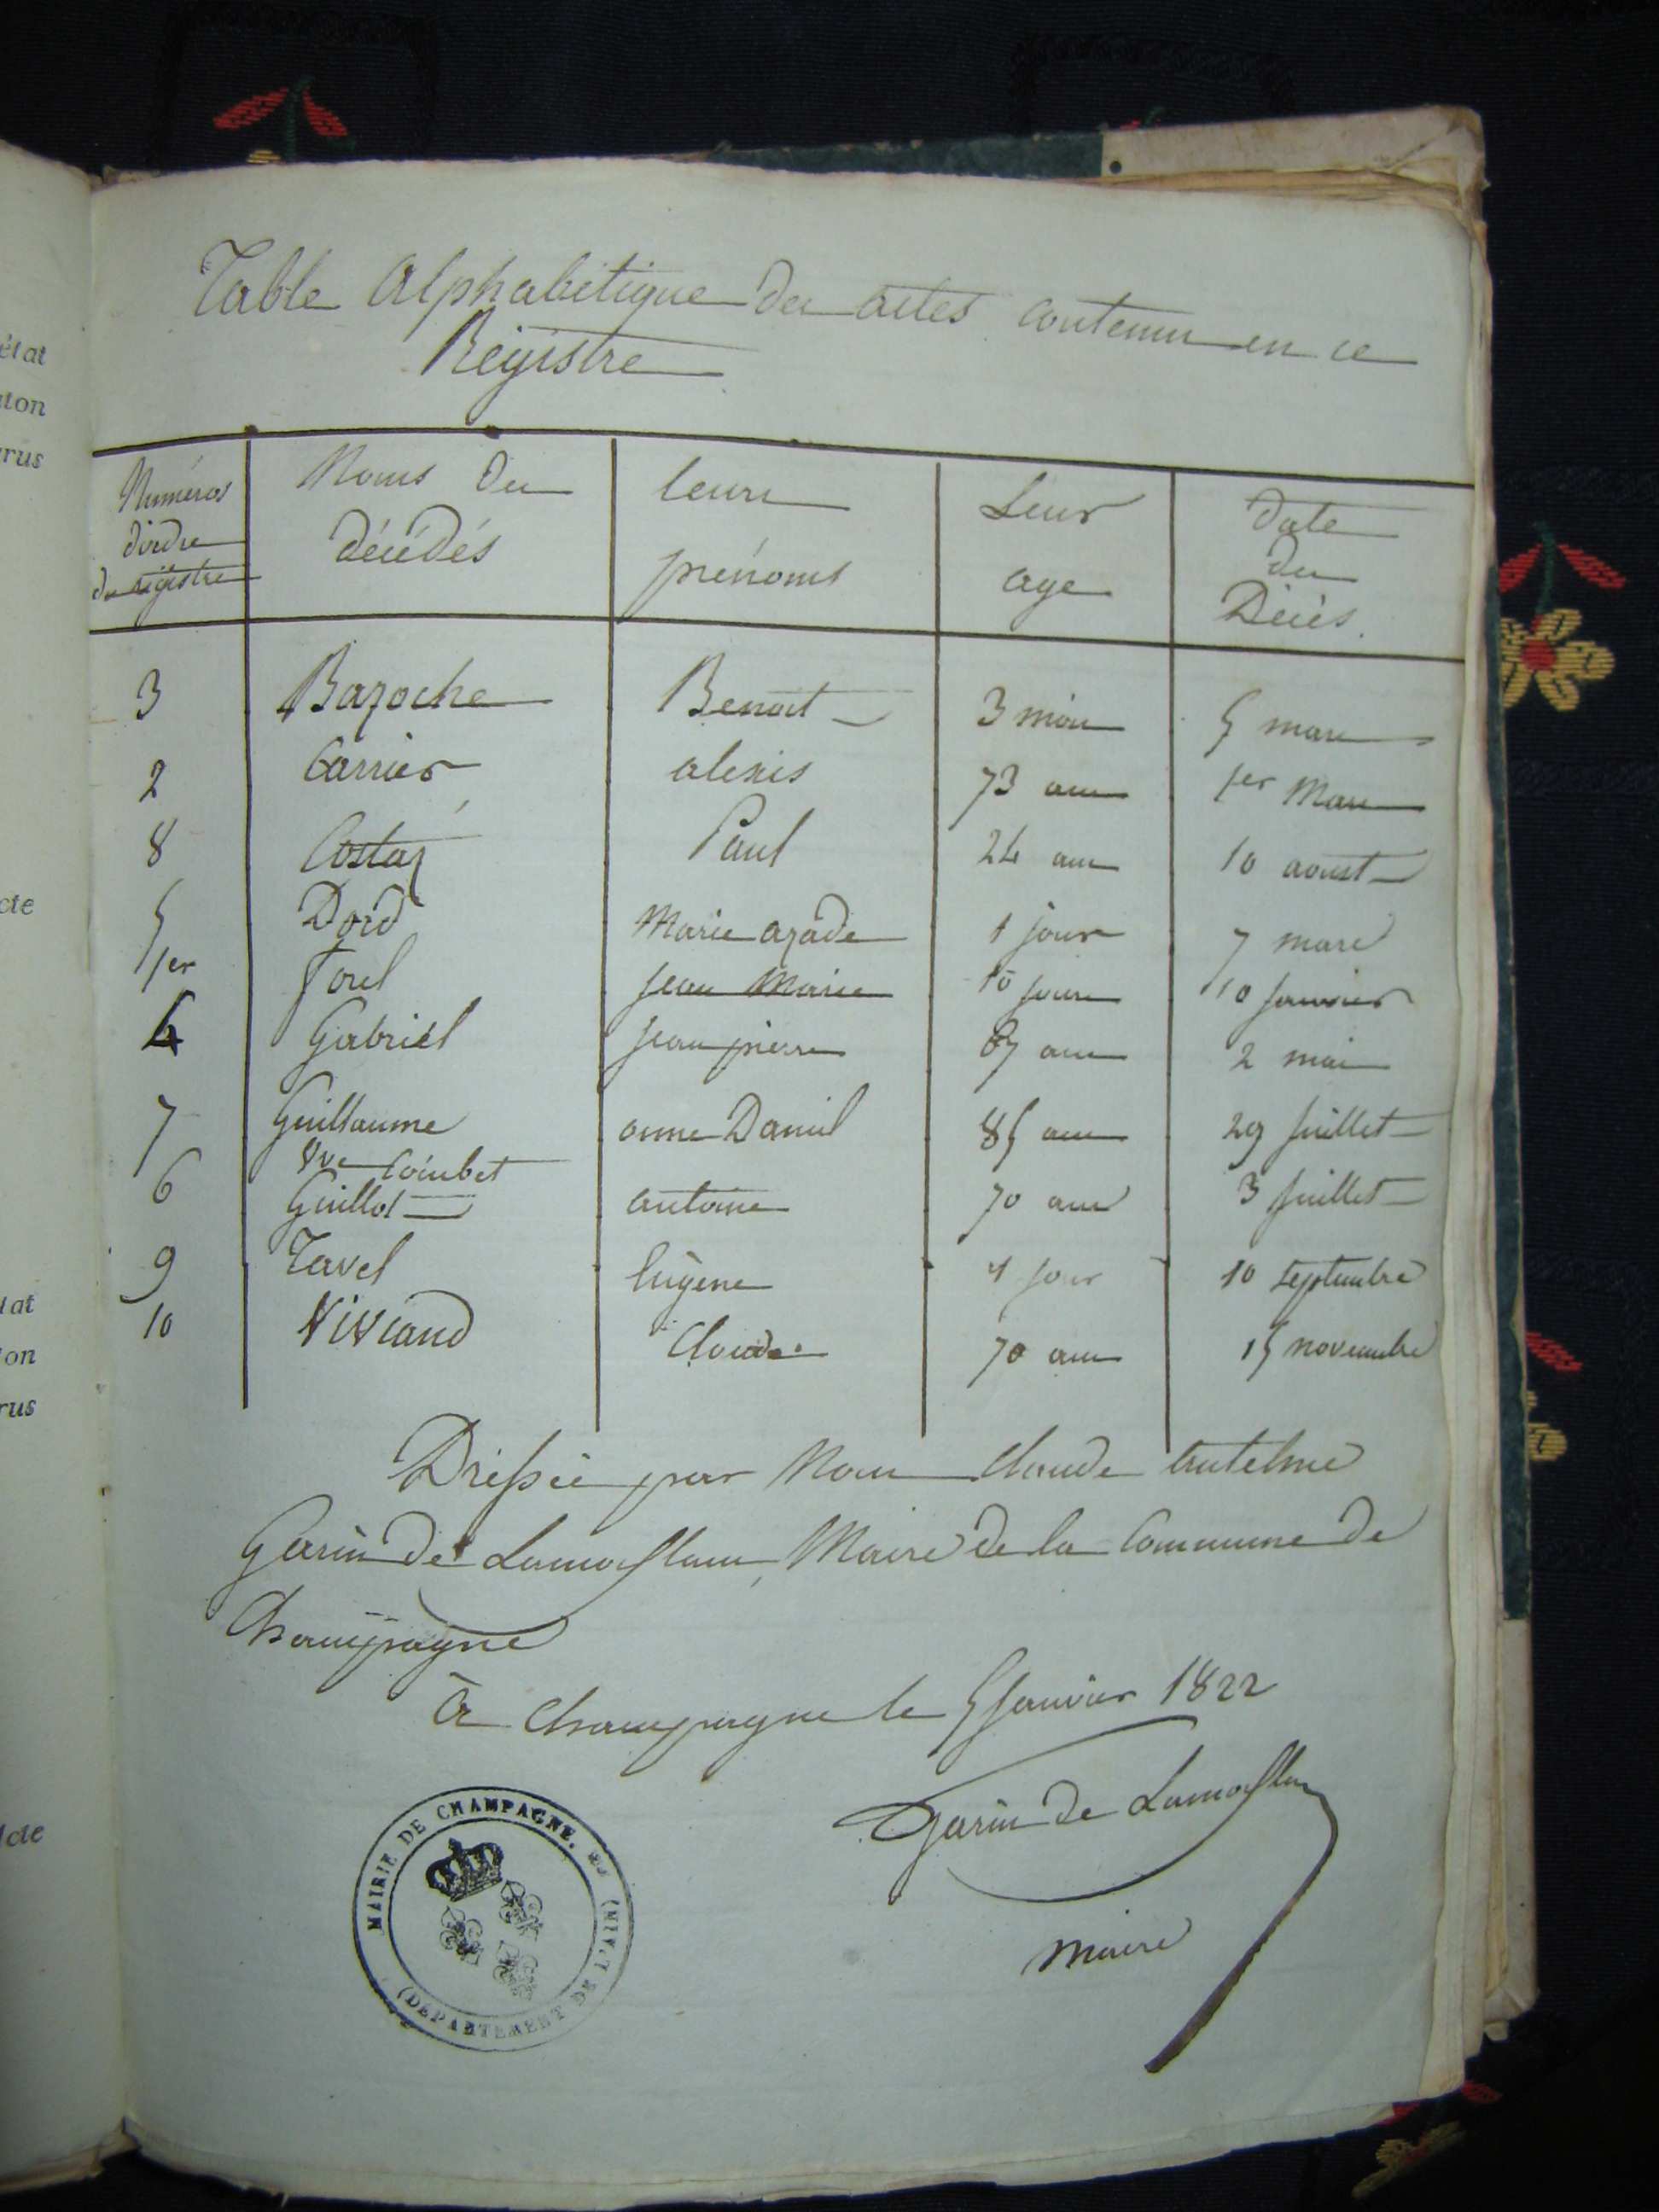 état
ton
rus
cte
tat
on
rus
cte
Table Alphabétique des actes contenus en ce
Régistre
Numéros
d'ordre
du régistre
Noms des
décédés
leurs
prénoms
Leur
age
date
des
Décès.
3 Bazoche Benoit 3 mois 5 mars
2 Carrier alexis 73 ans 1er Mars
8 Costaz Paul 24 ans 10 aoust
5 Dord Marie azade 1 jour 7 mars
1er forel jean Marie 10 jours 10 janvier
4 Gabriel jean pierre ans 2 mai
7 Guillaume anne Daniel 85 ans 29 juillet
Vve Coimbet
6 Guillot antoine 70 ans 3 juillet
9 Tavel Eugène 1 jour 10 septembre
10 Viviand Claude 70 ans 15 novembre
Dressée par Nous Claude Antelme
Garin De Lamorflan, Maire de la Commune de
Champagne
à Champagne le 5 Janvier 1822
Garin de Lamorflan
Maire
MAIRIE DE CHAMPAGNE.
(DÉPARTEMENT DE L'AIN)